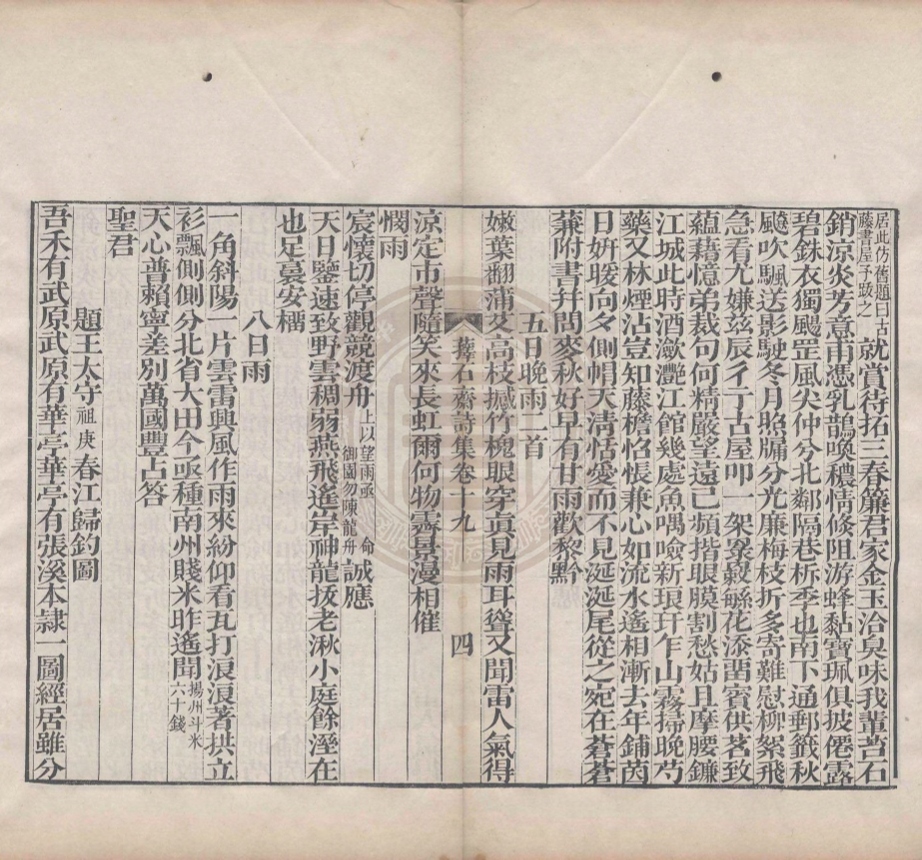 居此仿舊題曰古藤書屋予跋之就賞待拓三春簾君家金玉洽臭味我輩苔石
銷涼炎芳意甫憑乳鵲喚穠情倏阻游蜂黏寶珮俱披僊露
碧銖衣獨颺罡風尖仲分北鄰隔巷柝季也南下通郵籤秋
颸吹颿送影駛冬月照牖分光廉梅枝折多寄難慰柳絮飛
急看尤嫌兹辰彳亍古屋叩一架羃䍥緐花添畱賓供茗致
蘊藉憶弟裁句何精嚴望遠已頻揩眼膜割愁姑且摩腰鐮
江城此時酒瀲灩江館幾處魚喁噞新琅玕乍山霧掃晚芍
藥又林煙沾豈知藤檐惂悵兼心如流水遙相漸去年鋪茵
日姸暖向夕側帽天清恬愛而不見涎涎尾從之宛在蒼蒼
蒹附書幷問麥秋好早有甘雨歡黎黔
五日晚雨二首
嫩葉翻蒲艾高枝撼竹槐眼穿眞見雨耳聳又聞雷人氣得
蘀石齋詩集卷十九 四
涼定市聲隨笑來長虹爾何物霽景漫相催
憫雨
宸懷切停觀競渡舟上以望雨亟命御園勿陳龍舟誠應
天日鑒速致野雲稠弱燕飛遙岸神龍拔老湫小庭餘溼在
也足裛安榴
八日雨
一角斜陽一片雲雷興風作雨來紛仰看瓦打浪浪著拱立
衫飄側側分北省大田今亟種南州賤米昨遙聞揚州斗米六十錢
天心普賴寧差別萬國豐占答
聖君
題王太守祖庚春江歸釣圖
吾禾有武原武原有華亭華亭有張溪本隷一圖經居雖分